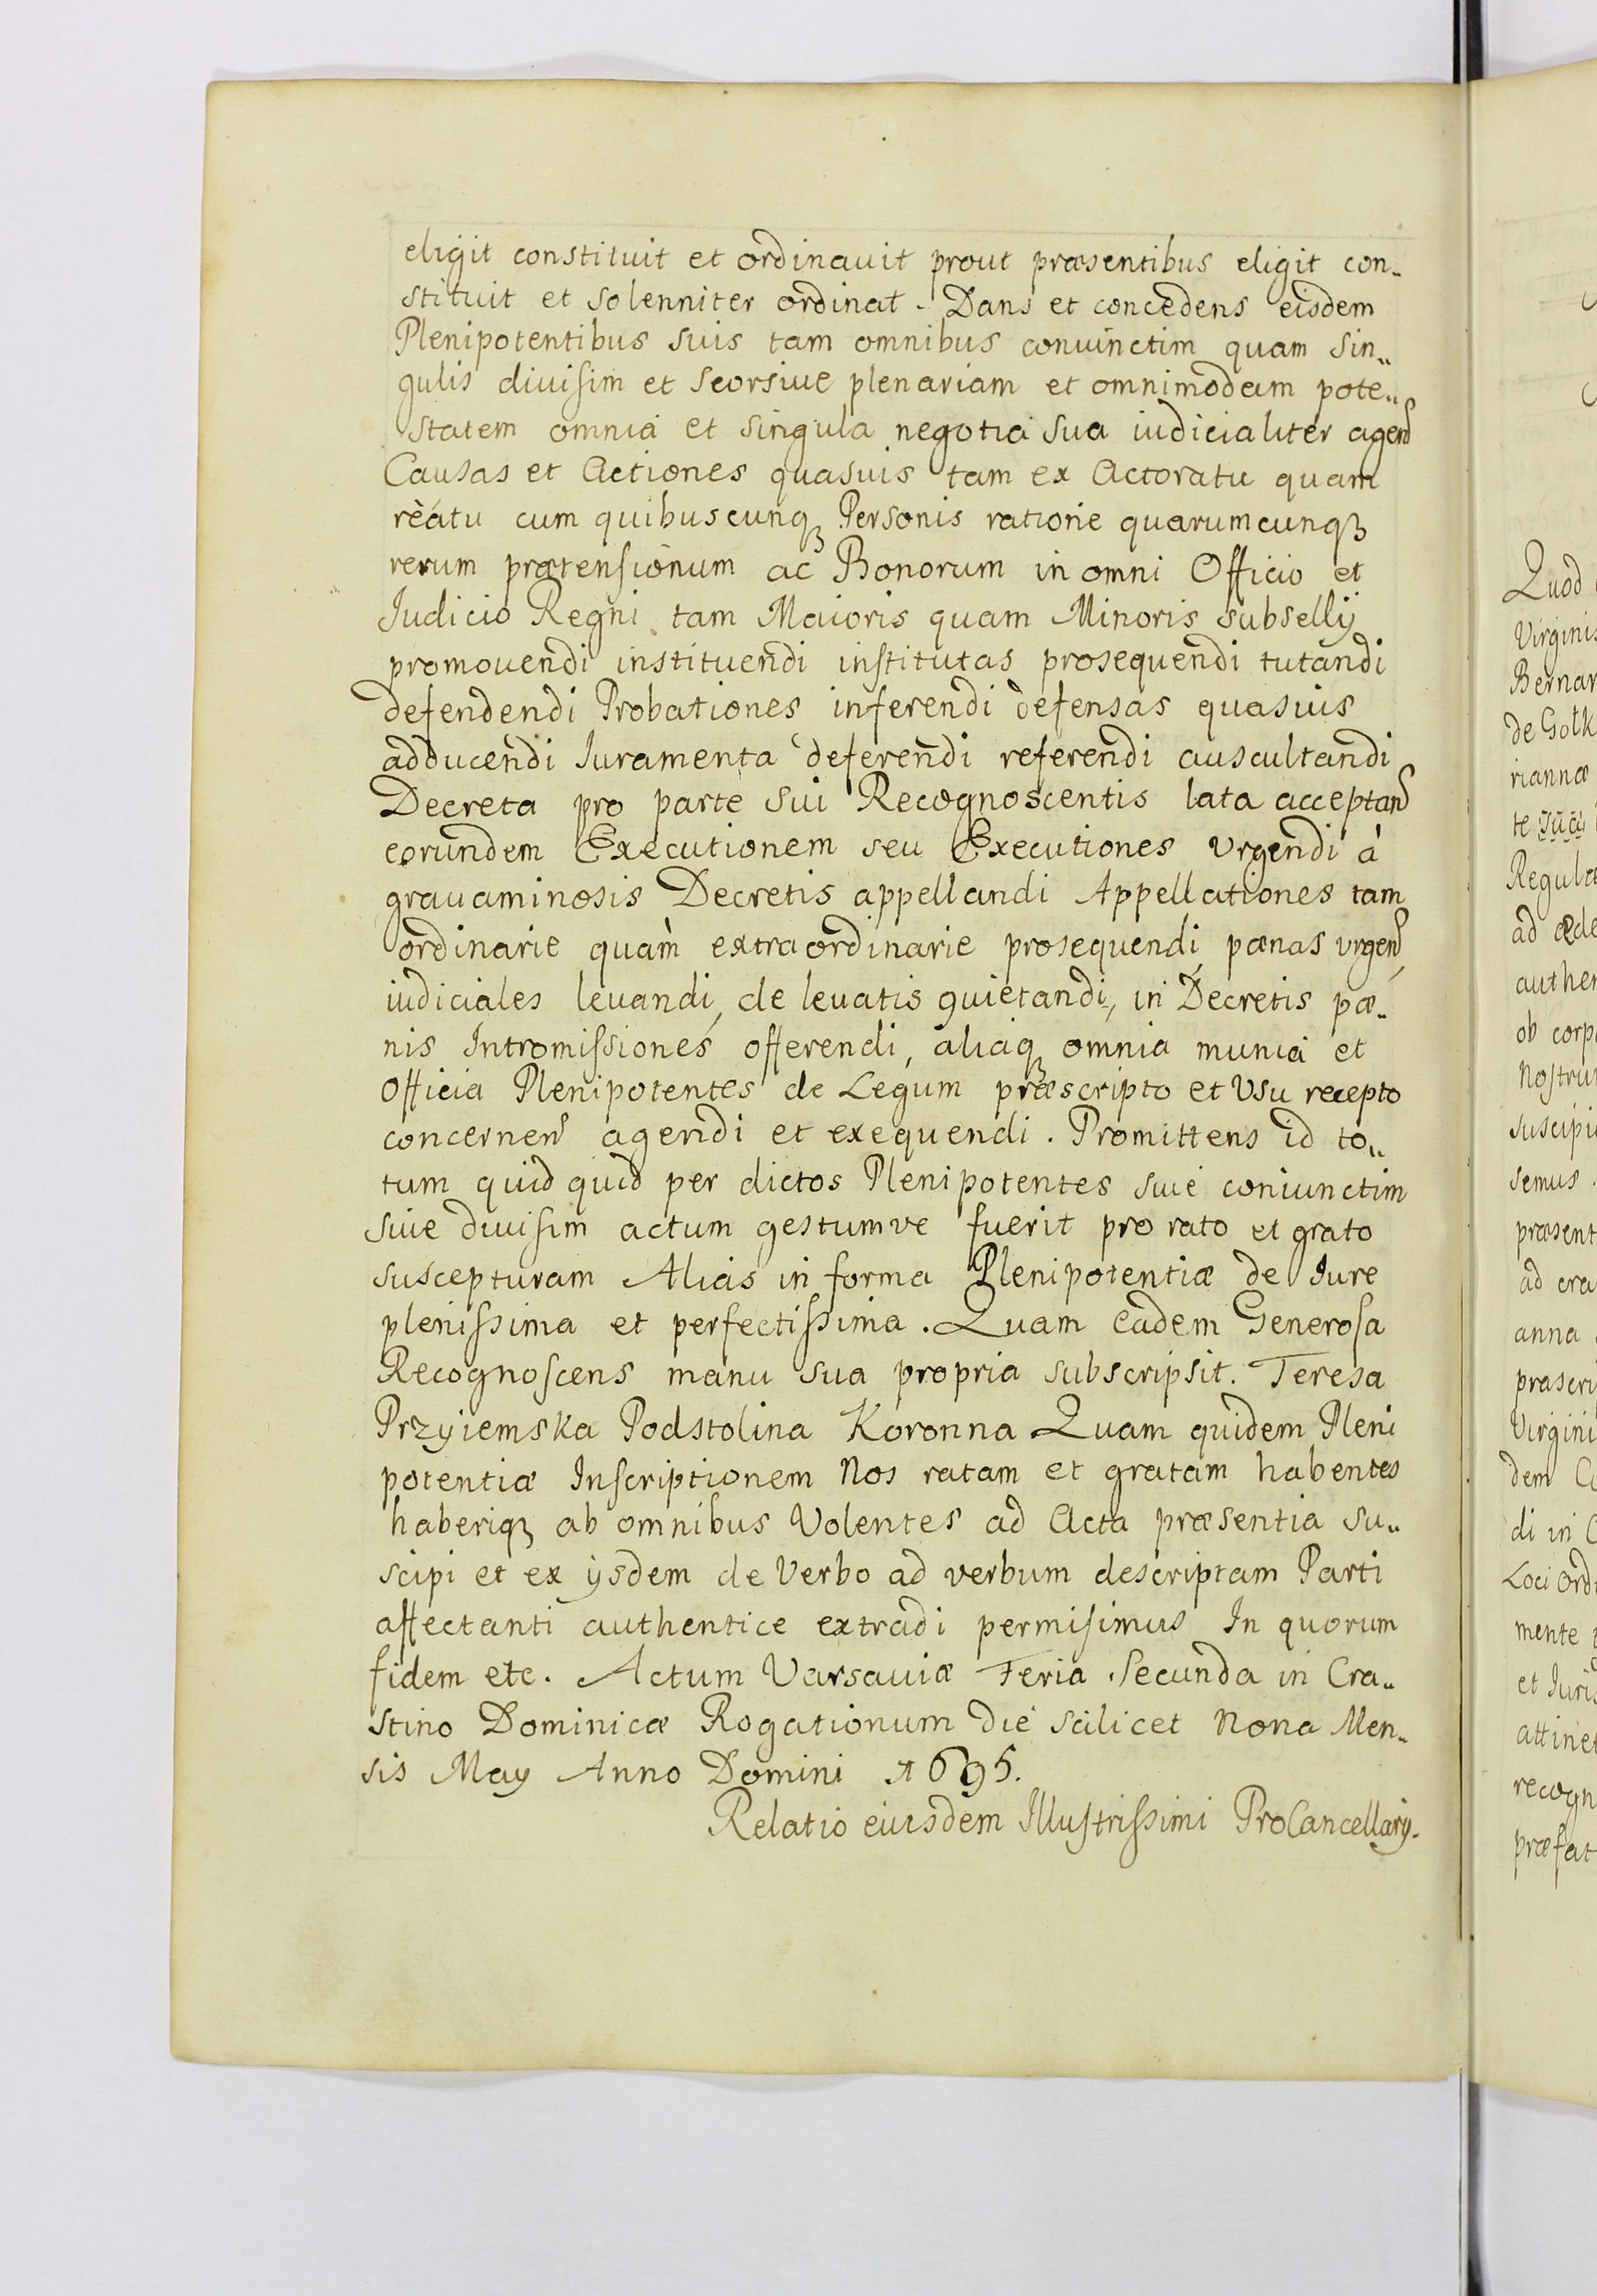 eligit constituit et ordinauit prout præsentibus eligit con-
stituit et solenniter ordinat. Dans et concedens eisdem
Plenipotentibus suis tam omnibus conuinctim quam sin-
gulis diuisim et seorsiue plenariam et omnimodam pote-
statem omnia et singula negotia sua iudicialiter agend
Causas et Actiones quasuis tam ex Actoratu quam
reatu cum quibuscunqȝ Personis ratione quarumcunqȝ
rerum prætensionum ac Bonorum in omni Officio et
Judicio Regni tam Maioris quam Minoris subsellij
promouendi instituendi institutas prosequendi tutandi
defendendi Probationes inferendi defensas quasuis
adducendi Iuramenta deferendi referendi auscultandi
Decreta pro parte sui Recognoscentis lata acceptand
eorundem Executionem seu Executiones Vrgendi à
grauaminosis Decretis appellandi Appellationes tam
ordinarie quàm extraordinarie prosequendi pœnas vrgend,
iudiciales leuandi, de leuatis quietandi, in Decretis pœ-
nis Intromissiones offerendi, aliaqȝ omnia munia et
Officia Plenipotentes de Legum præscripto et Vsu recepto
concernen agendi et exequendi. Promittens id to-
tum quidquid per dictos Plenipotentes siue coniunctim
siue diuisim actum gestumve fuerit pro rato et grato
suscepturam Alias in forma Plenipotentiæ de Iure
plenissima et perfectissima. Quam eadem Generosa
Recognoscens manu sua propria subscripsit. Teresa
Przyiemska Podstolina Koronna Quam quidem Pleni
potentiæ Inscriptionem Nos ratam et gratam habentes
haberiqȝ ab omnibus Volentes ad Acta præsentia su-
scipi et ex ijsdem de Verbo ad verbum descriptam Parti
affectanti authentice extradi permisimus In quorum
fidem etc. Actum Varsauiæ Feria Secunda in Cra-
stino Dominicæ Rogationum die scilicet Nona Men-
sis May Anno Domini 1695.
Relatio eiusdem Illustrissimi ProCancellarij.
Quod
Virginis
de Gołk
riannæ
ad æde
ob corp
semus.
ad
anna
Virgini
dem
di in
Loci Ord
mente
et Iuris